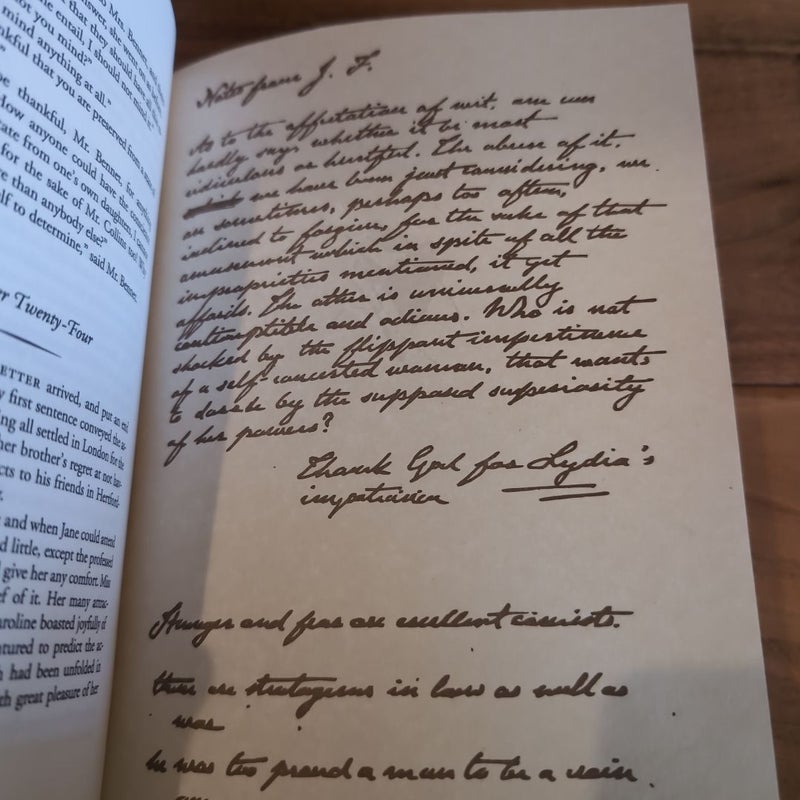 to Mrs. Bennet, and
answer, she went on as
the entail, I should not mind
not you mind?"
mind anything at all."
thankful that you are preserved from a state
be thankful, Mr. Bennet, for anything
How anyone could have the conscience
ate from one's own daughters, I cannot
for the sake of Mr. Collins too! Why
re than anybody else?"
elf to determine," said Mr. Bennet.
er Twenty-Four
ETTER arrived, and put an end
first sentence conveyed the as-
ing all settled in London for the
her brother's regret at not hav-
cts to his friends in Hertford-
and when Jane could attend
d little, except the professed
give her any comfort. Miss
ef of it. Her many attrac-
aroline boasted joyfully of
ntured to predict the ac-
h had been unfolded in
th great pleasure of her
Notes from J. F.
As to the affectation of wit, one can
hardly say whether it be most
ridiculous or hurtful. The abuse of it,
which we have been just considering, we
are sometimes, perhaps too often,
inclined to forgive, for the sake of that
amusement which in spite of all the
improprieties mentioned, it yet
affords. The other is universally
contemptible and odious. Who is not
shocked by the flippant impertinence
of a self-conceited woman, that wants
to dazzle by the supposed superiority
of her powers?
Thank God for Lydia's
impatience
Hunger and fear are excellent casuists.
there are stratagems in law as well as
war
he was too proud a man to be a vain